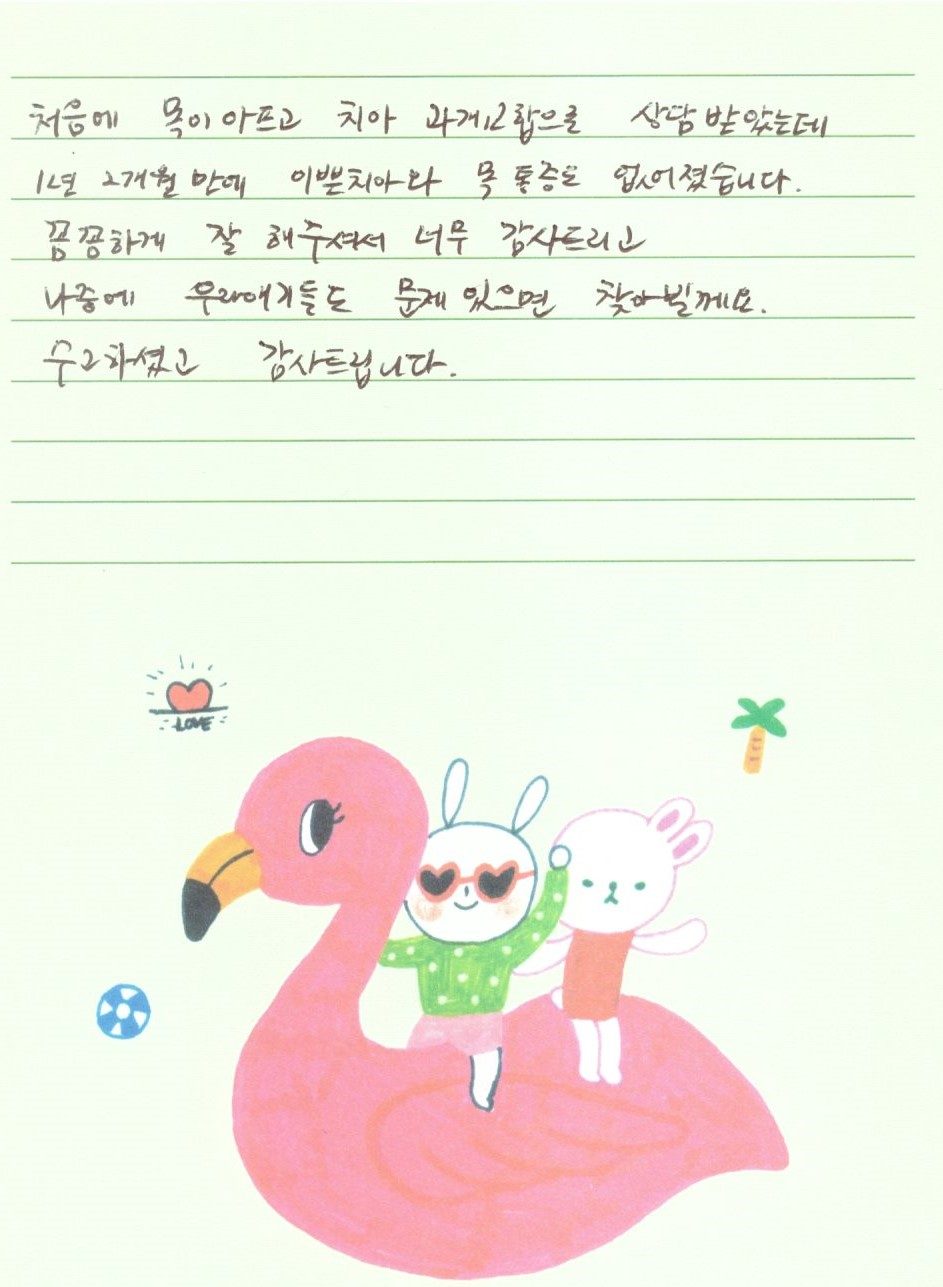 처음에 목이 아프고 치아 과개교합으로 상담 받았는데
1년 2개월 만에 이쁜치아와 목 통증도 없어졌습니다.
꼼꼼하게 잘 해주셔서 너무 감사드리고
나중에 우리애기들도 문제 있으면 찾아뵐께요.
수고하셨고 감사드립니다.
LOVE